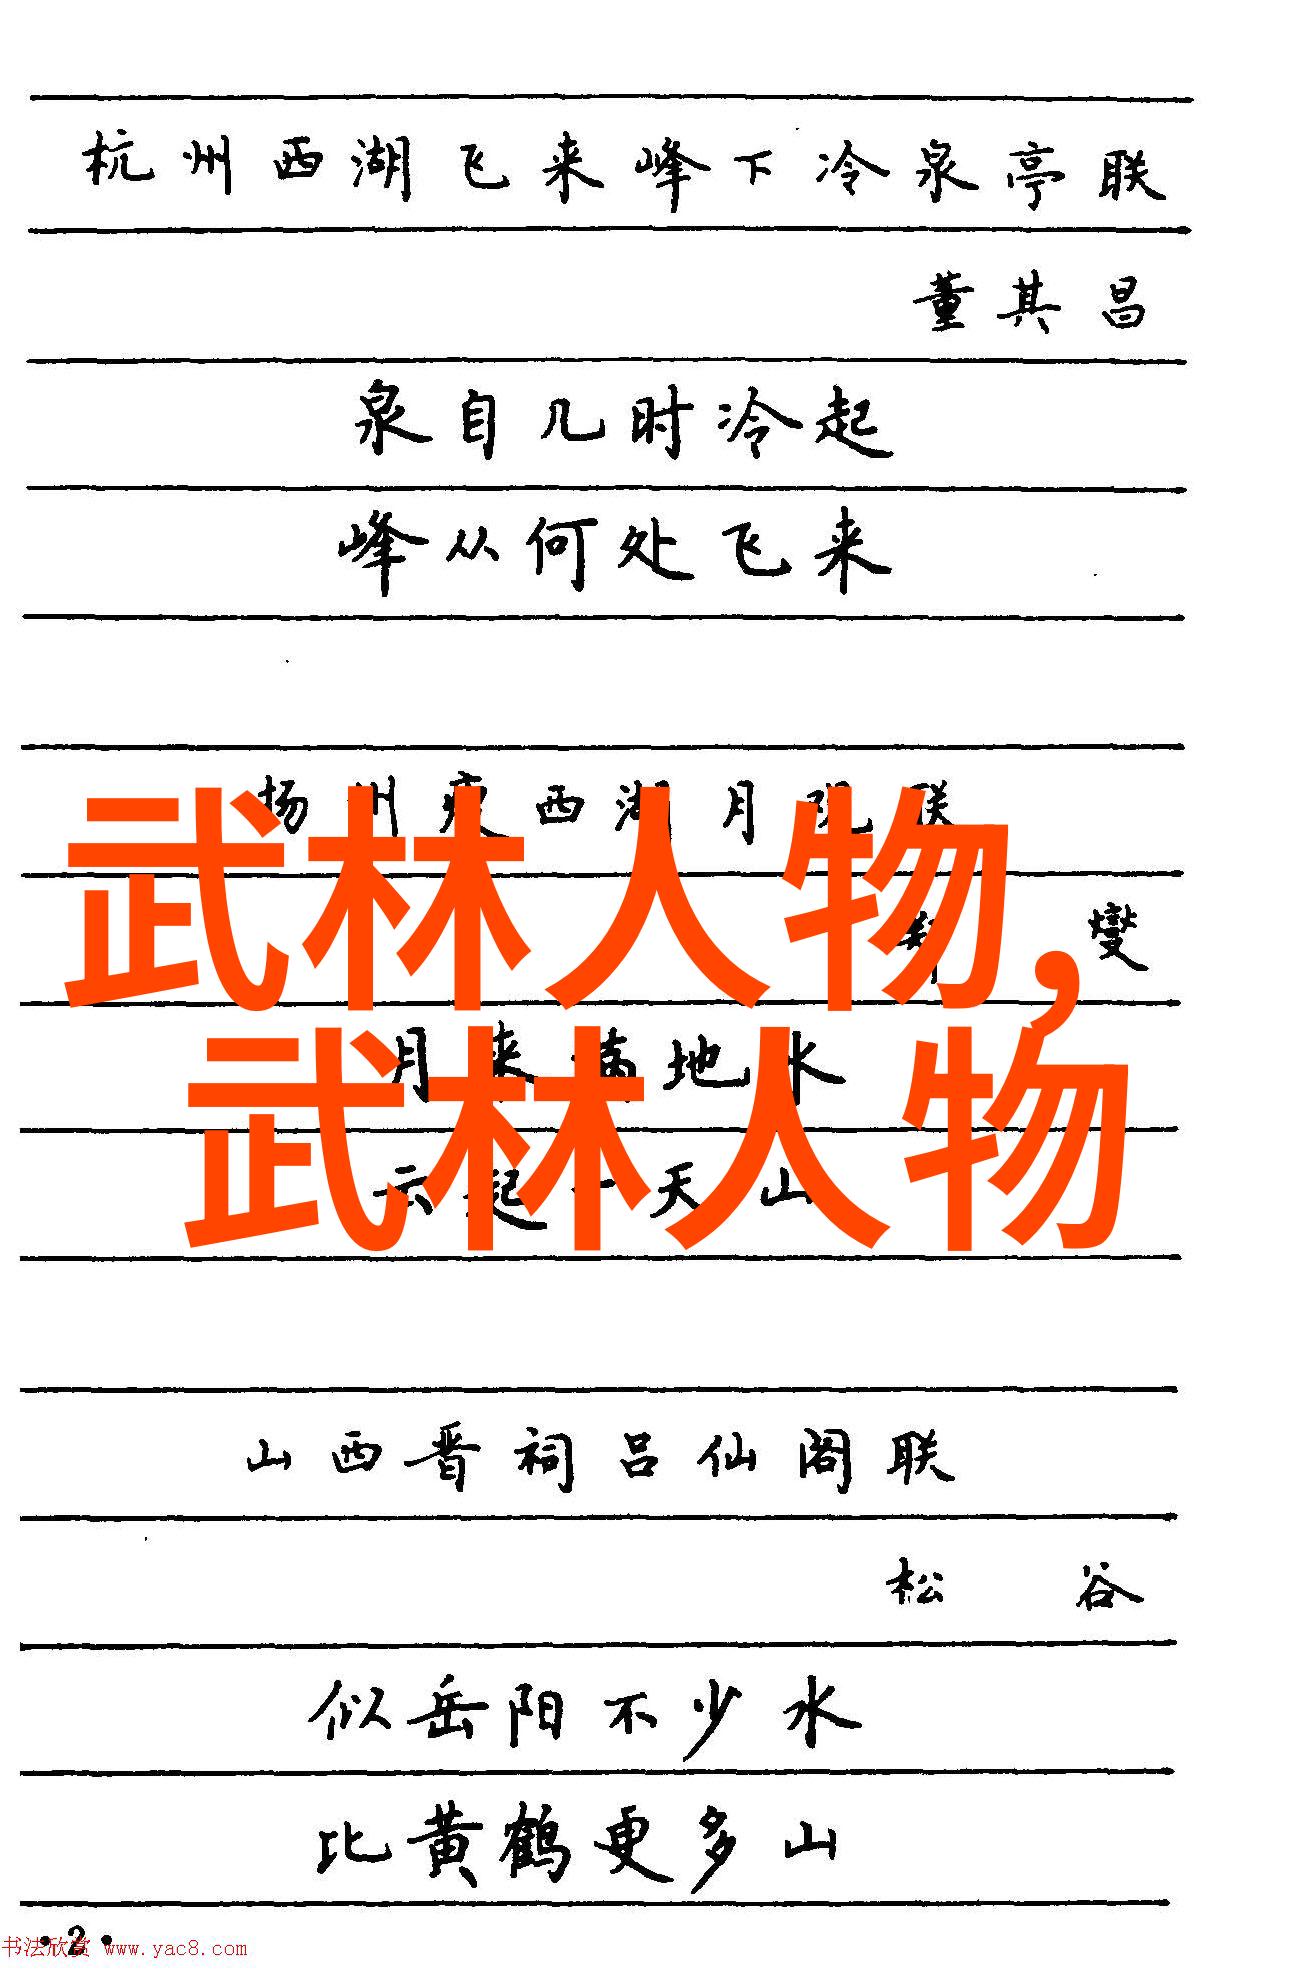 杭州西湖飞来峰下冷泉亭联
董其昌
泉自几时冷起
峰从何处飞来
扬州瘦西湖月观联
武林人物,
郑 燮
月来满地水
武林人物
云起一天山
山西晋祠吕仙阁联
松 谷
似岳阳不少水
比黄鹤更多山
·2·
书法欣赏 www.yac8.com